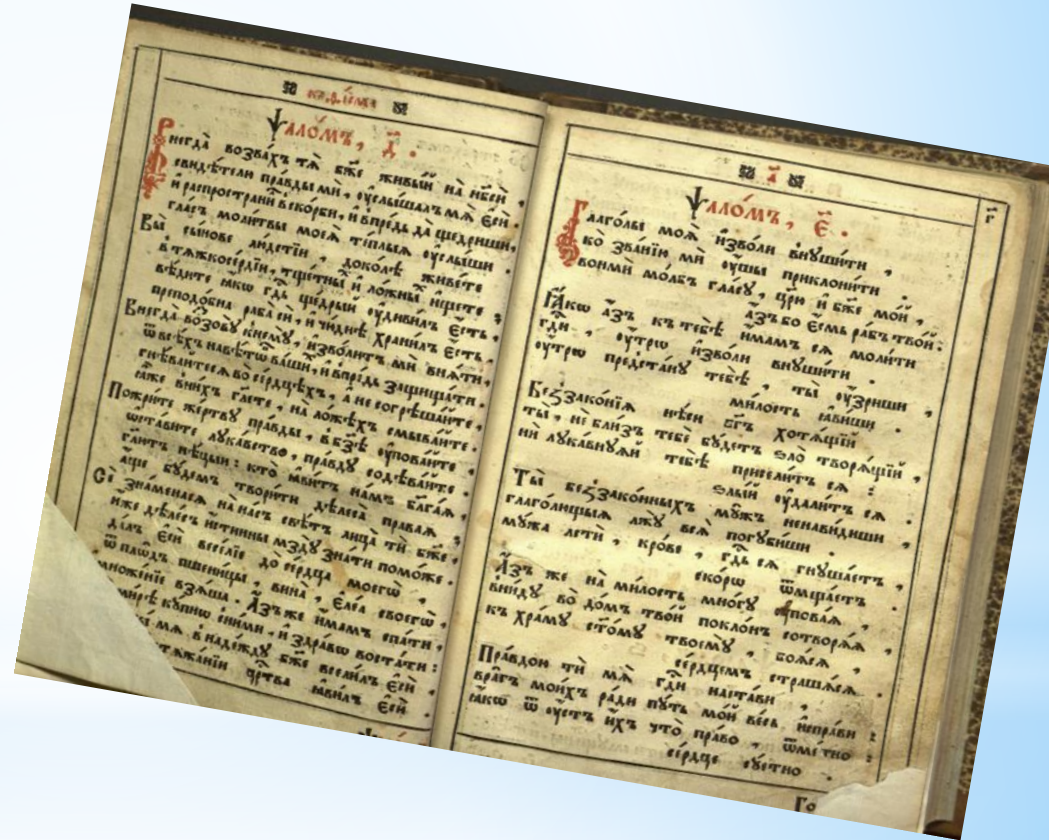 каѳісма
Ѱало́мъ, д҃.
Внегда̀ воззва́хъ тѧ̀ бж҃е живы́й на нб҃сѝ,
свидѣ́тели пра́вды мѝ, ᲂу҆слы́шалъ мѧ̀ є҆сѝ.
и҆ распространѝ в ско́рби, и҆ впре́дь да ще́дриши,
гла́съ моли́твы моеѧ̀ те́плыѧ ᲂу҆слы́ши.
Вы̀ сы́нове людстїи, доко́лѣ живе́те
в тѧжкосе́рдїи, тще́тны̑ѧ и҆ ло́жны̑ѧ и҆́щете,
вѣ́дите ꙗ҆́кѡ гдⷭ҇ь ще́дрый ᲂу҆диви́лъ є҆́сть,
преподо́бна раба̀ сѝ, и҆ чи́ннѣ храни́лъ є҆́сть.
Внегда̀ возову̀ к нему̀, и҆зво́литъ мѝ внѧ́ти,
ѿ всѣ́хъ навѣ́тѡвъ ва́ши, и҆ впре́дь защища́ти.
гнѣ́вайтесѧ во се́рдцѣхъ, а не согрѣша́йте,
са́же в ни́хъ гл҃ете, на ло́жѣхъ смыва́йте.
Пожри́те же́ртву пра́вды, в бз҃ѣ ᲂу҆пова́йте,
ѡ҆ста́вите лука́вство, пра́вду содѣва́йте.
гл҃ютъ нѣ́цыи: кто̀ ꙗ҆ви́тъ на́мъ бл҃га́ѧ,
а҆́ще бу́демъ твори́ти дѣ́леса пра́ваѧ,
Сѐ зна́менасѧ на на́съ свѣ́тъ лица̀ тѝ бж҃е,
и҆́же дѣ́лесъ и҆́стинны мзду̀ зна́ти помо́же.
да́лъ є҆сѝ весе́лїе до се́рдца моегѡ̀,
ѿ плѡ́дъ пшени́цы, вина̀, є҆ле́а своегѡ̀,
мно́женїе взѧ́ша. А҆́зъ же и҆́мамъ спа́ти,
ми́рѣ ку́пнѡ с ни́ми, и҆ здра́вѡ воста́ти:
мѧ в наде́жду бж҃е всели́лъ є҆сѝ,
тѧжа́нїи црⷭ҇тва ꙗ҆ви́лъ є҆сѝ.
а҃
г҃
Ѱало́мъ, є҃.
Глаго́лы моѧ̀ и҆зво́ли внꙋши́ти,
ко̀ зва́нїю мѝ ᲂу҆́шы приклони́ти.
вонмѝ мо́лбъ гла́сꙋ, цр҃ю̀ и҆ бж҃е мо́й,
а҆́зъ бо є҆́смь ра́бъ тво́й:
Ꙗ҆́кѡ а҆́зъ к тебѣ̀ и҆́мамъ сѧ моли́ти
гдⷭ҇и, ᲂу҆́трѡ и҆зво́ли внꙋши́ти.
ᲂу҆́трѡ предста́нꙋ тебѣ̀, ты̀ ᲂу҆́зриши,
ми́лость ꙗ҆ви́ши.
Беззако́нїѧ нѣ́си бг҃ъ хотѧ́щїй
ты̀, не бли́зъ тебѐ бꙋ́детъ ѕло̀ творѧ́щїй,
нѝ лука́внꙋѧй тебѣ̀ присели́тъ сѧ:
ѕлы́й ᲂу҆дали́тъ сѧ.
Ты̀ беззако́нныхъ мꙋ́жъ ненави́диши,
глаго́лющыѧ лжꙋ̀ всѧ̀ погꙋби́ши.
мꙋ́жа ле́сти, кро́ве, гдⷭ҇ь сѧ гнꙋша́етъ,
ско́рѡ ѿмеща́етъ.
А҆́зъ же на̀ ми́лость мно́гꙋ ᲂу҆пова́ѧ,
вни́дꙋ во̀ до́мъ тво́й покло́нъ сотворѧ́ѧ,
къ хра́мꙋ ст҃о́мꙋ твоемꙋ̀, боѧ́сѧ,
се́рдцемъ страша́сѧ.
Пра́вдою тѝ мѧ̀ гдⷭ҇и наста́ви,
вра́гъ мои́хъ ра́ди пꙋ́ть мо́й ве́сь и҆спра́ви:
ꙗ҆́кѡ ѿ ᲂу҆́стъ и҆́хъ что̀ пра́во, ѿме́тно:
се́рдце сꙋ́етно.
Го